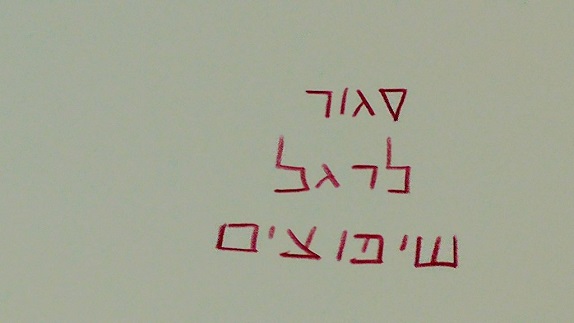 סגור
לרגל
שיפוצים